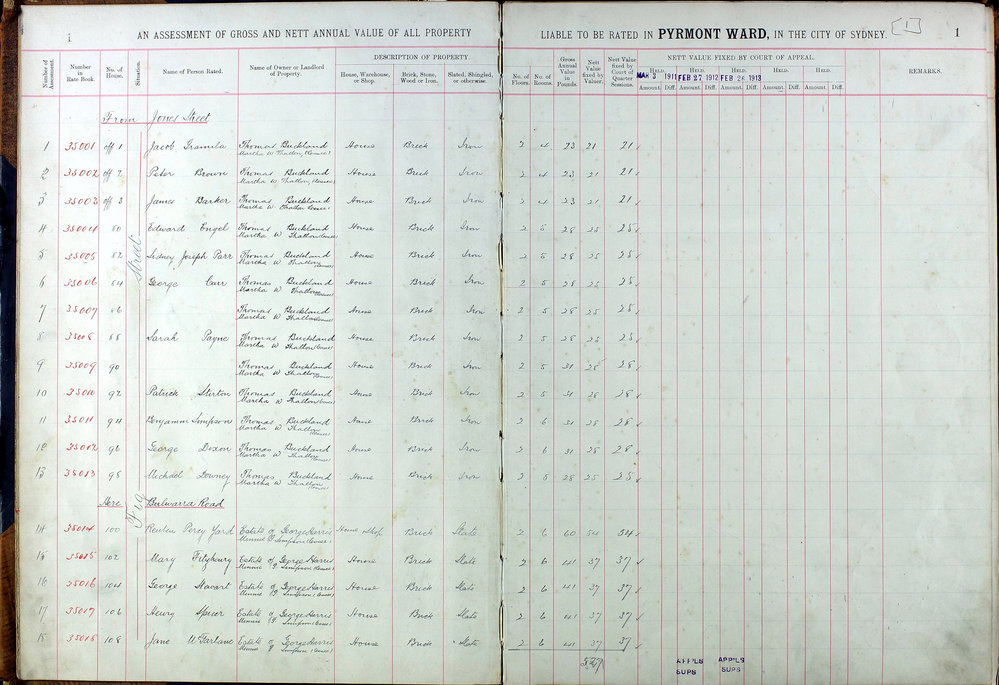 i AN ASSESSMENT OF GROSS AND NETT ANNUAL VALUE OF ALL PROPERTY LIABLE TO BE RATED IN PYRMONT WARD, IN THE CITY OF SYDNEY. [1] 1
DESCRIPTION OF PROPERTY NETT VALUE FIXED BY COURT OF APPEAL.
Number of Assessment. Number in Rate Book. No. of House. Situation. Name of Person Rated. Name of Owner or Landlord of Property. House, Warehouse, or Shop. Brick, Stone, Wood or Iron. Slated, Shingled, or otherwise. No. of Floors. No. of Rooms. Gross Annual Value in Pounds. Nett Value fixed by Valuer. Nett Value fixed by Court of Quarter Sessions. HELD. HELD. HELD. HELD. HELD. REMARKS.
MAR 3 1911 FEB 27 1912 FEB 26 1913
Amount. Diff. Amount. Diff. Amount. Diff. Amount. Diff. Amount. Diff.
From Jones Street
1 35001 off 1 Jacob Thomas Buckland House Brick Iron 2 4 23 21 21
Martha W Thallon (Lessee)
2 35002 off 2 Peter Brown Thomas Buckland House Brick Iron 2 4 23 21 21
Martha W Thallon (Lessee)
3 35003 off 3 James Barker Thomas Buckland House Brick Iron 2 4 23 21 21
Martha W Thallon (Lessee)
4 35004 80 Edward Engel Thomas Buckland House Brick Iron 2 5 28 25 25
Martha W Thallon (Lessee)
5 35005 82 Sydney Joseph Parr Thomas Buckland House Brick Iron 2 5 28 25 25
Martha W Thallon (Lessee)
6 35006 84 George Carr Thomas Buckland House Brick Iron 2 5 28 25 25
Martha W Thallon (Lessee)
7 35007 86 Thomas Buckland House Brick Iron 2 5 28 25 25
Martha W Thallon (Lessee)
8 35008 88 Sarah Payne Thomas Buckland House Brick Iron 2 5 28 25 25
Martha W Thallon (Lessee)
9 35009 90 Thomas Buckland House Brick Iron 2 5 31 28 28
Martha W Thallon (Lessee)
10 35010 92 Patrick Thomas Buckland House Brick Iron 2 5 31 28 28
Martha W Thallon (Lessee)
11 35011 94 Benjamin Simpson Thomas Buckland House Brick Iron 2 6 31 28 28
Martha W Thallon (Lessee)
12 35012 96 George Dixon Thomas Buckland House Brick Iron 2 6 31 28 28
Martha W Thallon (Lessee)
13 35013 98 Michael Downey Thomas Buckland House Brick Iron 2 5 28 25 25
Martha W Thallon (Lessee)
Fig Street
Here Bulwarra Road
14 35014 100 Reuben Percy Yard Estate of George Harris House & Shop Brick Slate 2 6 60 54 54
Minnie P Simpson (Lessee)
15 35015 102 Mary Estate of George Harris House Brick Slate 2 6 41 37 37
Minnie P Simpson (Lessee)
16 35016 104 George Estate of George Harris House Brick Slate 2 6 41 37 37
Minnie P Simpson (Lessee)
17 35017 106 Henry Spicer Estate of George Harris House Brick Slate 2 6 41 37 37
Minnie P Simpson (Lessee)
18 35018 108 Jane McFarlane Estate of George Harris House Brick Slate 2 6 41 37 37
Minnie P Simpson (Lessee)
APP'LS APP'LS
SUPS SUPS